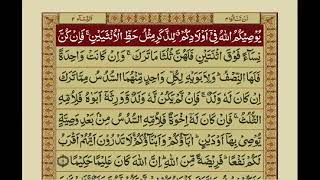 لَنْ تَنَالُوا ۴
اَلنِّسَآء ۴
يُوْصِيْكُمُ اللّٰهُ فِيْٓ اَوْلَادِكُمْ لِلذَّكَرِ مِثْلُ حَظِّ الْاُنْثَيَيْنِ فَاِنْ كُنَّ
نِسَآءً فَوْقَ اثْنَتَيْنِ فَلَهُنَّ ثُلُثَا مَا تَرَكَ وَاِنْ كَانَتْ وَاحِدَةً
فَلَهَا النِّصْفُ وَلِاَبَوَيْهِ لِكُلِّ وَاحِدٍ مِّنْهُمَا السُّدُسُ مِمَّا تَرَكَ
اِنْ كَانَ لَهٗ وَلَدٌ فَاِنْ لَّمْ يَكُنْ لَّهٗ وَلَدٌ وَّوَرِثَهٗٓ اَبَوٰهُ فَلِاُمِّهِ
الثُّلُثُ فَاِنْ كَانَ لَهٗٓ اِخْوَةٌ فَلِاُمِّهِ السُّدُسُ مِنْۢ بَعْدِ وَصِيَّةٍ
يُّوْصِيْ بِهَآ اَوْ دَيْنٍ اٰبَآؤُكُمْ وَاَبْنَآؤُكُمْ لَا تَدْرُوْنَ اَيُّهُمْ اَقْرَبُ
لَكُمْ نَفْعًا فَرِيْضَةً مِّنَ اللّٰهِ اِنَّ اللّٰهَ كَانَ عَلِيْمًا حَكِيْمًا